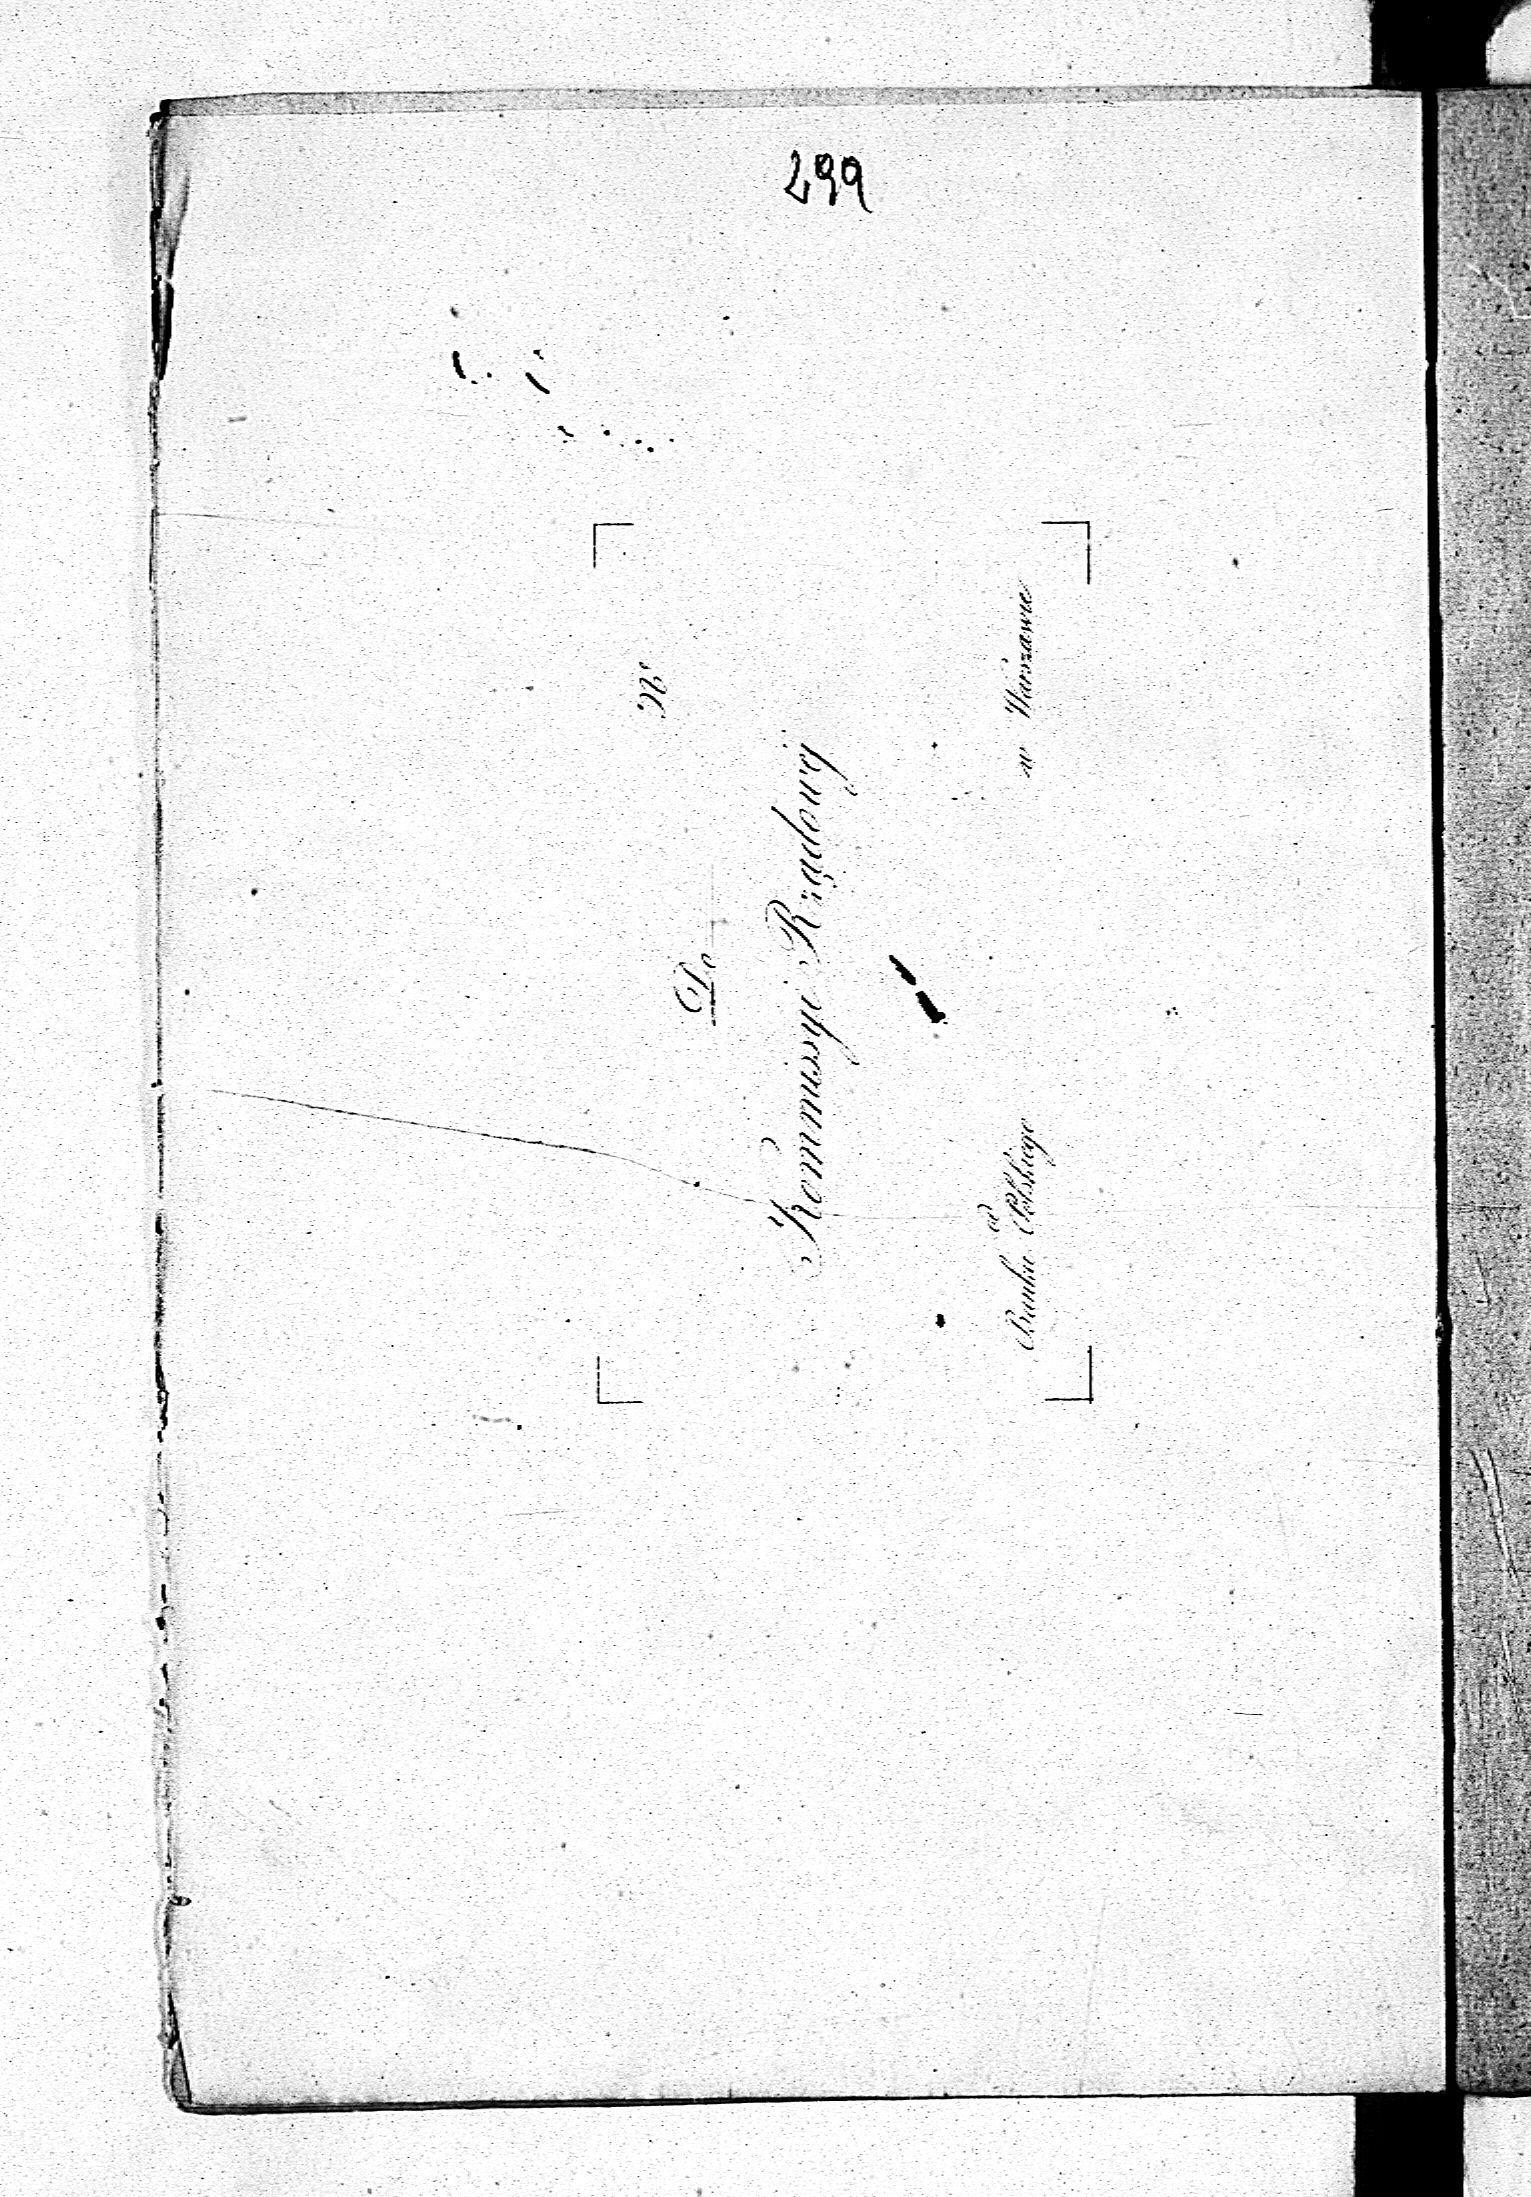 299
№
Do
Kommissyi Rządowéj
od
Banku Polskiego
w Warszawie